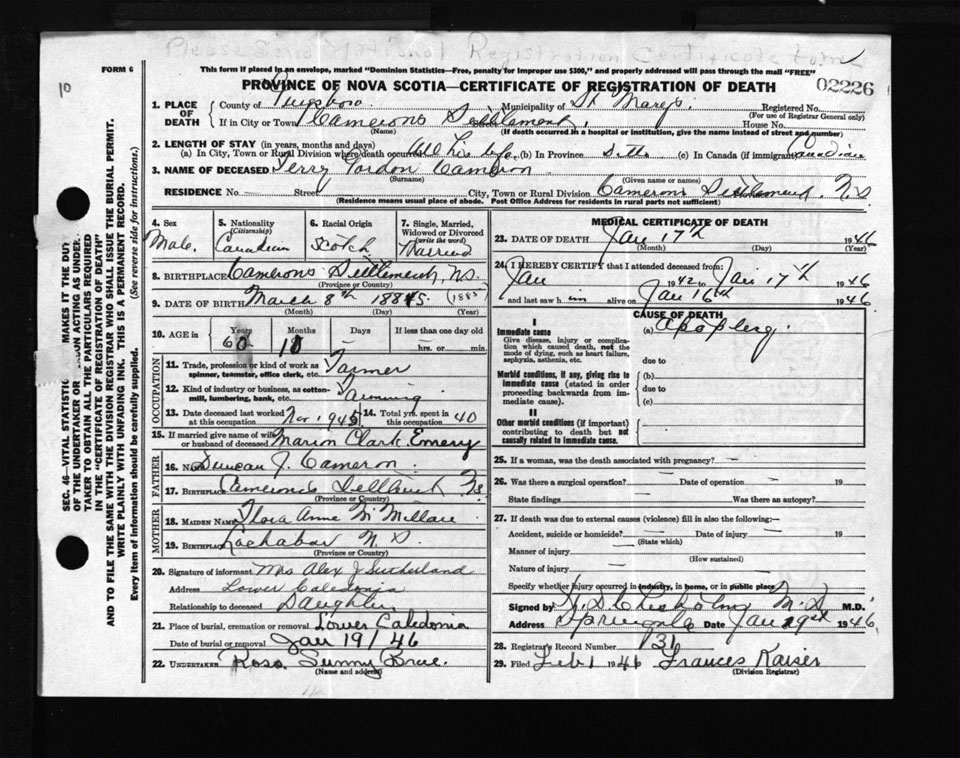 Please Send National Registration Certificate
FORM 6
10
This form if placed in an envelope, marked "Dominion Statistics—Free, penalty for improper use $300," and properly addressed will pass through the mail "FREE"
PROVINCE OF NOVA SCOTIA—CERTIFICATE OF REGISTRATION OF DEATH
02226
1. PLACE OF DEATH { County of Guysboro Municipality of St Marys. Registered No.
(For use of Registrar General only)
If in City or Town Camerons Settlement. House No.
(Name) (If death occurred in a hospital or institution, give the name instead of street and number)
2. LENGTH OF STAY (in years, months and days)
(a) In City, Town or Rural Division where death occurred All his life. (b) In Province ditto (c) In Canada (if immigrant) Canadian
3. NAME OF DECEASED Terry Gordon Cameron
(Surname) (Given name or names)
RESIDENCE No. Street City, Town or Rural Division Camerons Settlement, N.S
(Residence means usual place of abode. Post Office Address for residents in rural parts not sufficient)
4. Sex Male.
5. Nationality (Citizenship) Canadian
6. Racial Origin Scotch
7. Single, Married, Widowed or Divorced (write the word) Married
8. BIRTHPLACE Camerons Settlement, N.S.
(Province or Country)
9. DATE OF BIRTH March 8th 1885 (1885)
(Month) (Day) (Year)
10. AGE in { Years 60 Months 10 Days — If less than one day
hrs. or min.
OCCUPATION
11. Trade, profession or kind of work as spinner, teamster, office clerk, etc. Farmer
12. Kind of industry or business, as cotton-mill, lumbering, bank, etc. Farming
13. Date deceased last worked at this occupation Nov 1945 14. Total yrs. spent in this occupation 40
15. If married give name of wife or husband of deceased Marion Clark Emery
FATHER
16. Name Duncan J. Cameron
17. Birthplace Camerons Settlement NS
(Province or Country)
MOTHER
18. Maiden Name Flora Anne McMillan
19. Birthplace Lochabar N.S.
(Province or Country)
20. Signature of informant Mrs Alex J Sutherland
Address Lower Caledonia
Relationship to deceased Daughter
21. Place of burial, cremation or removal Lower Caledonia
Date of burial or removal Jan 19/46
22. UNDERTAKER Ross. Sunny Brae.
(Name and address)
MEDICAL CERTIFICATE OF DEATH
23. DATE OF DEATH Jan 17th 1946
(Month) (Day)
24. I HEREBY CERTIFY that I attended deceased from:
Jan 1942 to Jan 17th 1946
and last saw him alive on Jan 16th 1946
CAUSE OF DEATH
I
Immediate cause (a)
Give disease, injury or complication which caused death, not the mode of dying, such as heart failure, asphyxia, asthenia, etc.
due to
Morbid conditions, if any, giving rise to immediate cause (stated in order proceeding backwards from immediate cause).
(b)
due to
(c)
II
Other morbid conditions (if important) contributing to death but not causally related to immediate cause.
25. If a woman, was the death associated with pregnancy? —
26. Was there a surgical operation? — Date of operation — 19
State findings Was there an autopsy?
27. If death was due to external causes (violence) fill in also the following:—
Accident, suicide or homicide? — Date of injury — 19
(State which)
Manner of injury —
(How sustained)
Nature of injury —
Specify whether injury occurred in industry, in home, or in public place
Signed by Chisholm M.D M.D.
Address Date Jan 1946
28. Registrar's Record Number 31
29. Filed Feb 1 1946 Frances Kaiser
(Division Registrar)
SEC. 46—VITAL STATISTIC MAKES IT THE DUT
OF THE UNDERTAKER OR ACTING AS UNDER-
TAKER TO OBTAIN ALL THE PARTICULARS REQUIRED
IN THE "CERTIFICATE OF REGISTRATION OF DEATH"
AND TO FILE THE SAME WITH THE DIVISION REGISTRAR WHO SHALL ISSUE THE BURIAL PERMIT.
WRITE PLAINLY WITH UNFADING INK. THIS IS A PERMANENT RECORD.
Every item of information should be carefully supplied. (See reverse side for instructions.)